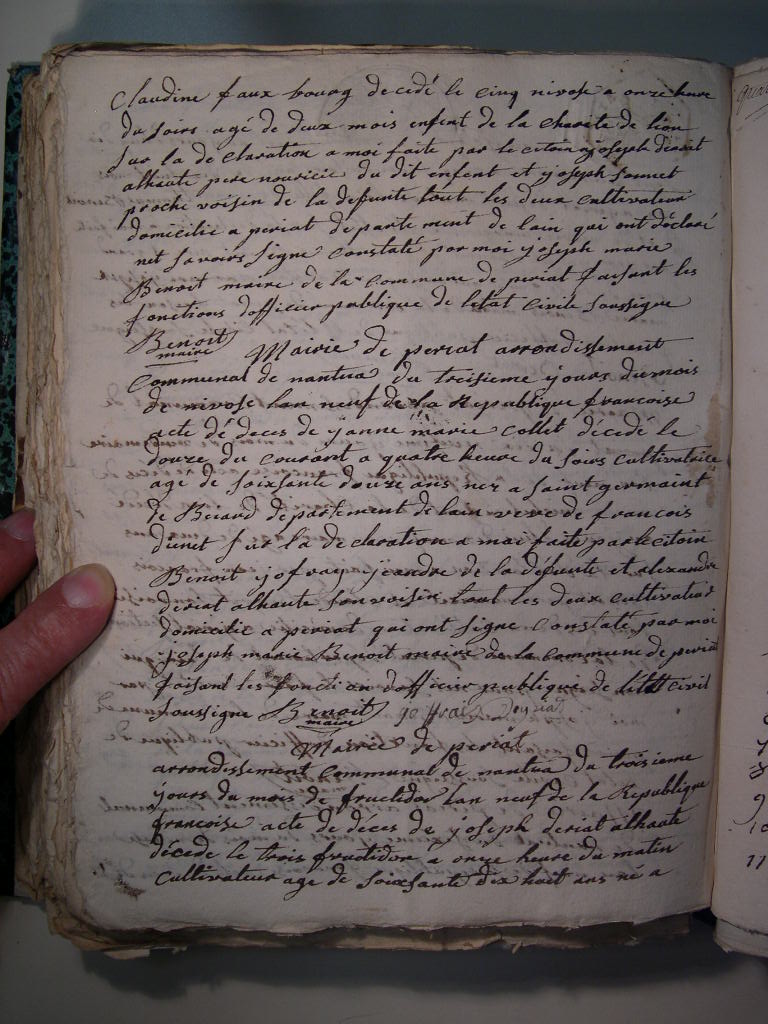 Claudine faux bourg decedé le cinq nivose a onze heure
du soirs agé de deux mois enfent de la charité de lion
sur la de claration a moi faite par le citoin joseph deriat
alhaute pere nouricié du dit enfent et joseph
proche voisin de la defunte tout les deux cultivateur
domicilié a periat departement de lain qui ont déclaré
net savoirs signe constaté par moi joseph marie
Benoit maire de la commune de periat faisant les
fonctions dofficier publique de letat civile soussigne
Benoit
maire
Mairie de periat arrondissement
Communal de nantua du troisieme jours du mois
de nivose lan neuf de la Republique francoise
acte dé deces de janne marie collet décedé le
douze du courant a quatre heure du soirs cultivatrice
agé de soixsante douze ans nez a saint germaint
de Beiard departement de lain veve de francois
sur la de claration a moi faite par le citoin
Benoit jofray jeandre de la défunte et alexandre
deriat alhaute son voisin tout les deux cultivateur
domicilié a periat qui ont signe Constaté par moi
joseph marie Benoit maire de la commune de periat
faisant les fonction dofficier publique de létat civil
soussigne Benoit joffrai Deyriat
maire
Mairie de periat
arrondissement communal de nantua du troisieme
jours du mois de fructidor lan neuf de la Republique
francoise acte de déces de joseph deriat alhaute
décede le trois fructidor a onze heure du matin
cultivateur age de soixsante dix huit ans né a